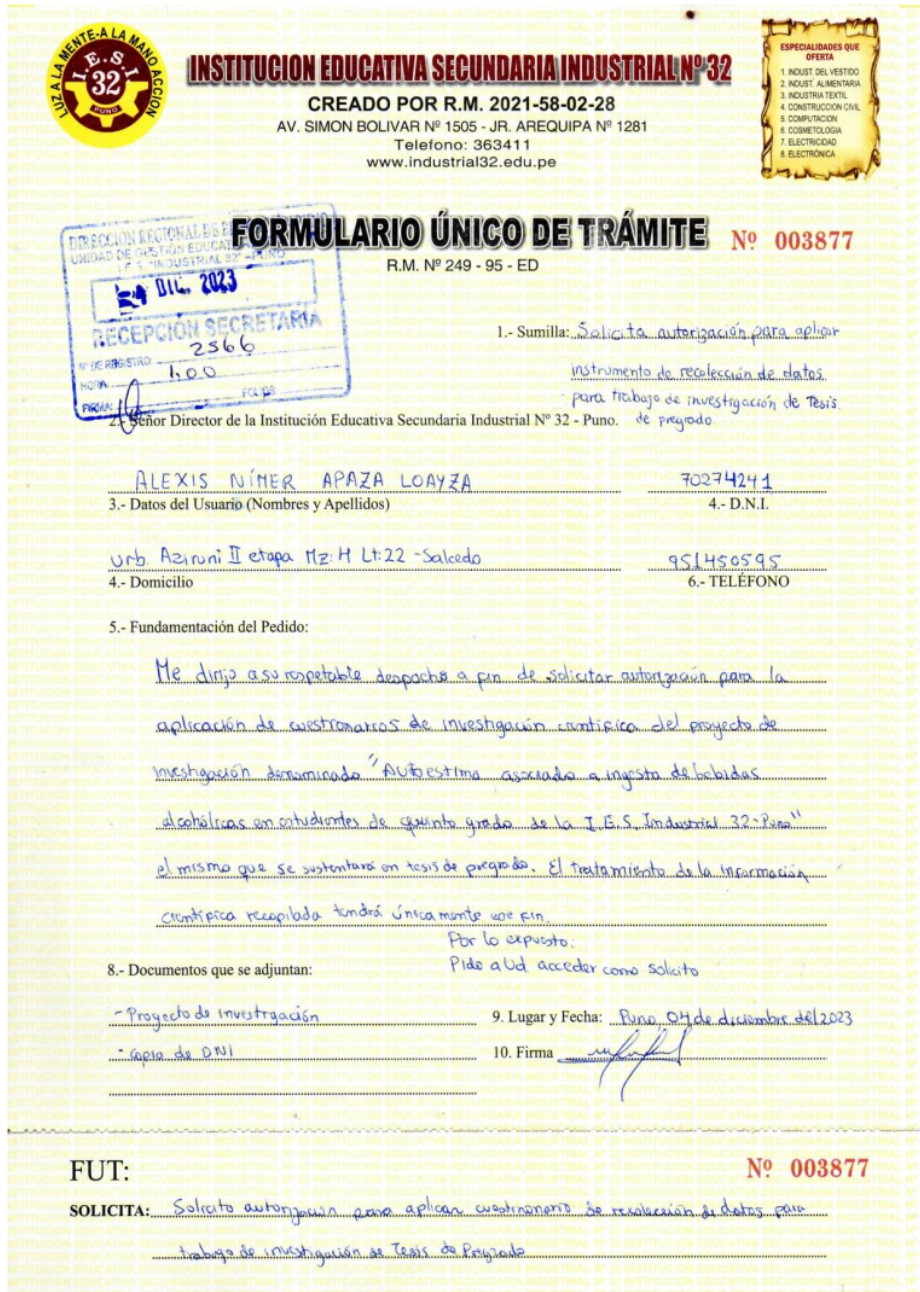 LUZ A LA MENTE-A LA MANO ACCION
I.E.S.I.
32
PUNO
INSTITUCION EDUCATIVA SECUNDARIA INDUSTRIAL Nº 32
CREADO POR R.M. 2021-58-02-28
AV. SIMON BOLIVAR Nº 1505 - JR. AREQUIPA Nº 1281
Telefono: 363411
www.industrial32.edu.pe
ESPECIALIDADES QUE
OFERTA
1. INDUST. DEL VESTIDO
2. INDUST. ALIMENTARIA
3. INDUSTRIA TEXTIL
4. CONSTRUCCION CIVIL
5. COMPUTACION
6. COSMETOLOGIA
7. ELECTRICIDAD
8. ELECTRÓNICA
FORMULARIO ÚNICO DE TRÁMITE
Nº 003877
R.M. Nº 249 - 95 - ED
DIRECCION REGIONAL DE
UNIDAD DE GESTIÓN
I.E.S. "INDUSTRIAL 32" - PUNO
04 DIC. 2023
RECEPCIÓN SECRETARÍA
Nº DE REGISTRO: 2566
HORA: 1.00
FOLIOS
FIRMA:
1.- Sumilla: Solicita autorización para aplicar
instrumento de recolección de datos
para trabajo de investigación de Tesis
de pregrado.
2.- Señor Director de la Institución Educativa Secundaria Industrial Nº 32 - Puno.
ALEXIS NÍMER APAZA LOAYZA 70274241
3.- Datos del Usuario (Nombres y Apellidos) 4.- D.N.I.
Urb. Aziruni II etapa Mz: H Lt: 22 - Salcedo 951450595
4.- Domicilio 6.- TELÉFONO
5.- Fundamentación del Pedido:
Me dirijo a su respetable despacho a fin de solicitar autorización para la
aplicación de cuestionarios de investigación científica del proyecto de
investigación denominado "Autoestima asociado a ingesta de bebidas
alcohólicas en estudiantes de quinto grado de la I.E.S. Industrial 32-Puno"
el mismo que se sustentará en tesis de pregrado. El tratamiento de la información
científica recopilada tendrá únicamente ese fin.
Por lo expuesto:
Pido a Ud acceder como solicito
8.- Documentos que se adjuntan:
- Proyecto de investigación
- Copia de DNI
9. Lugar y Fecha: Puno, 04 de diciembre del 2023
10. Firma
FUT:
Nº 003877
SOLICITA: Solicito autorización para aplicar cuestionario de recolección de datos para
trabajo de investigación de Tesis de Pregrado